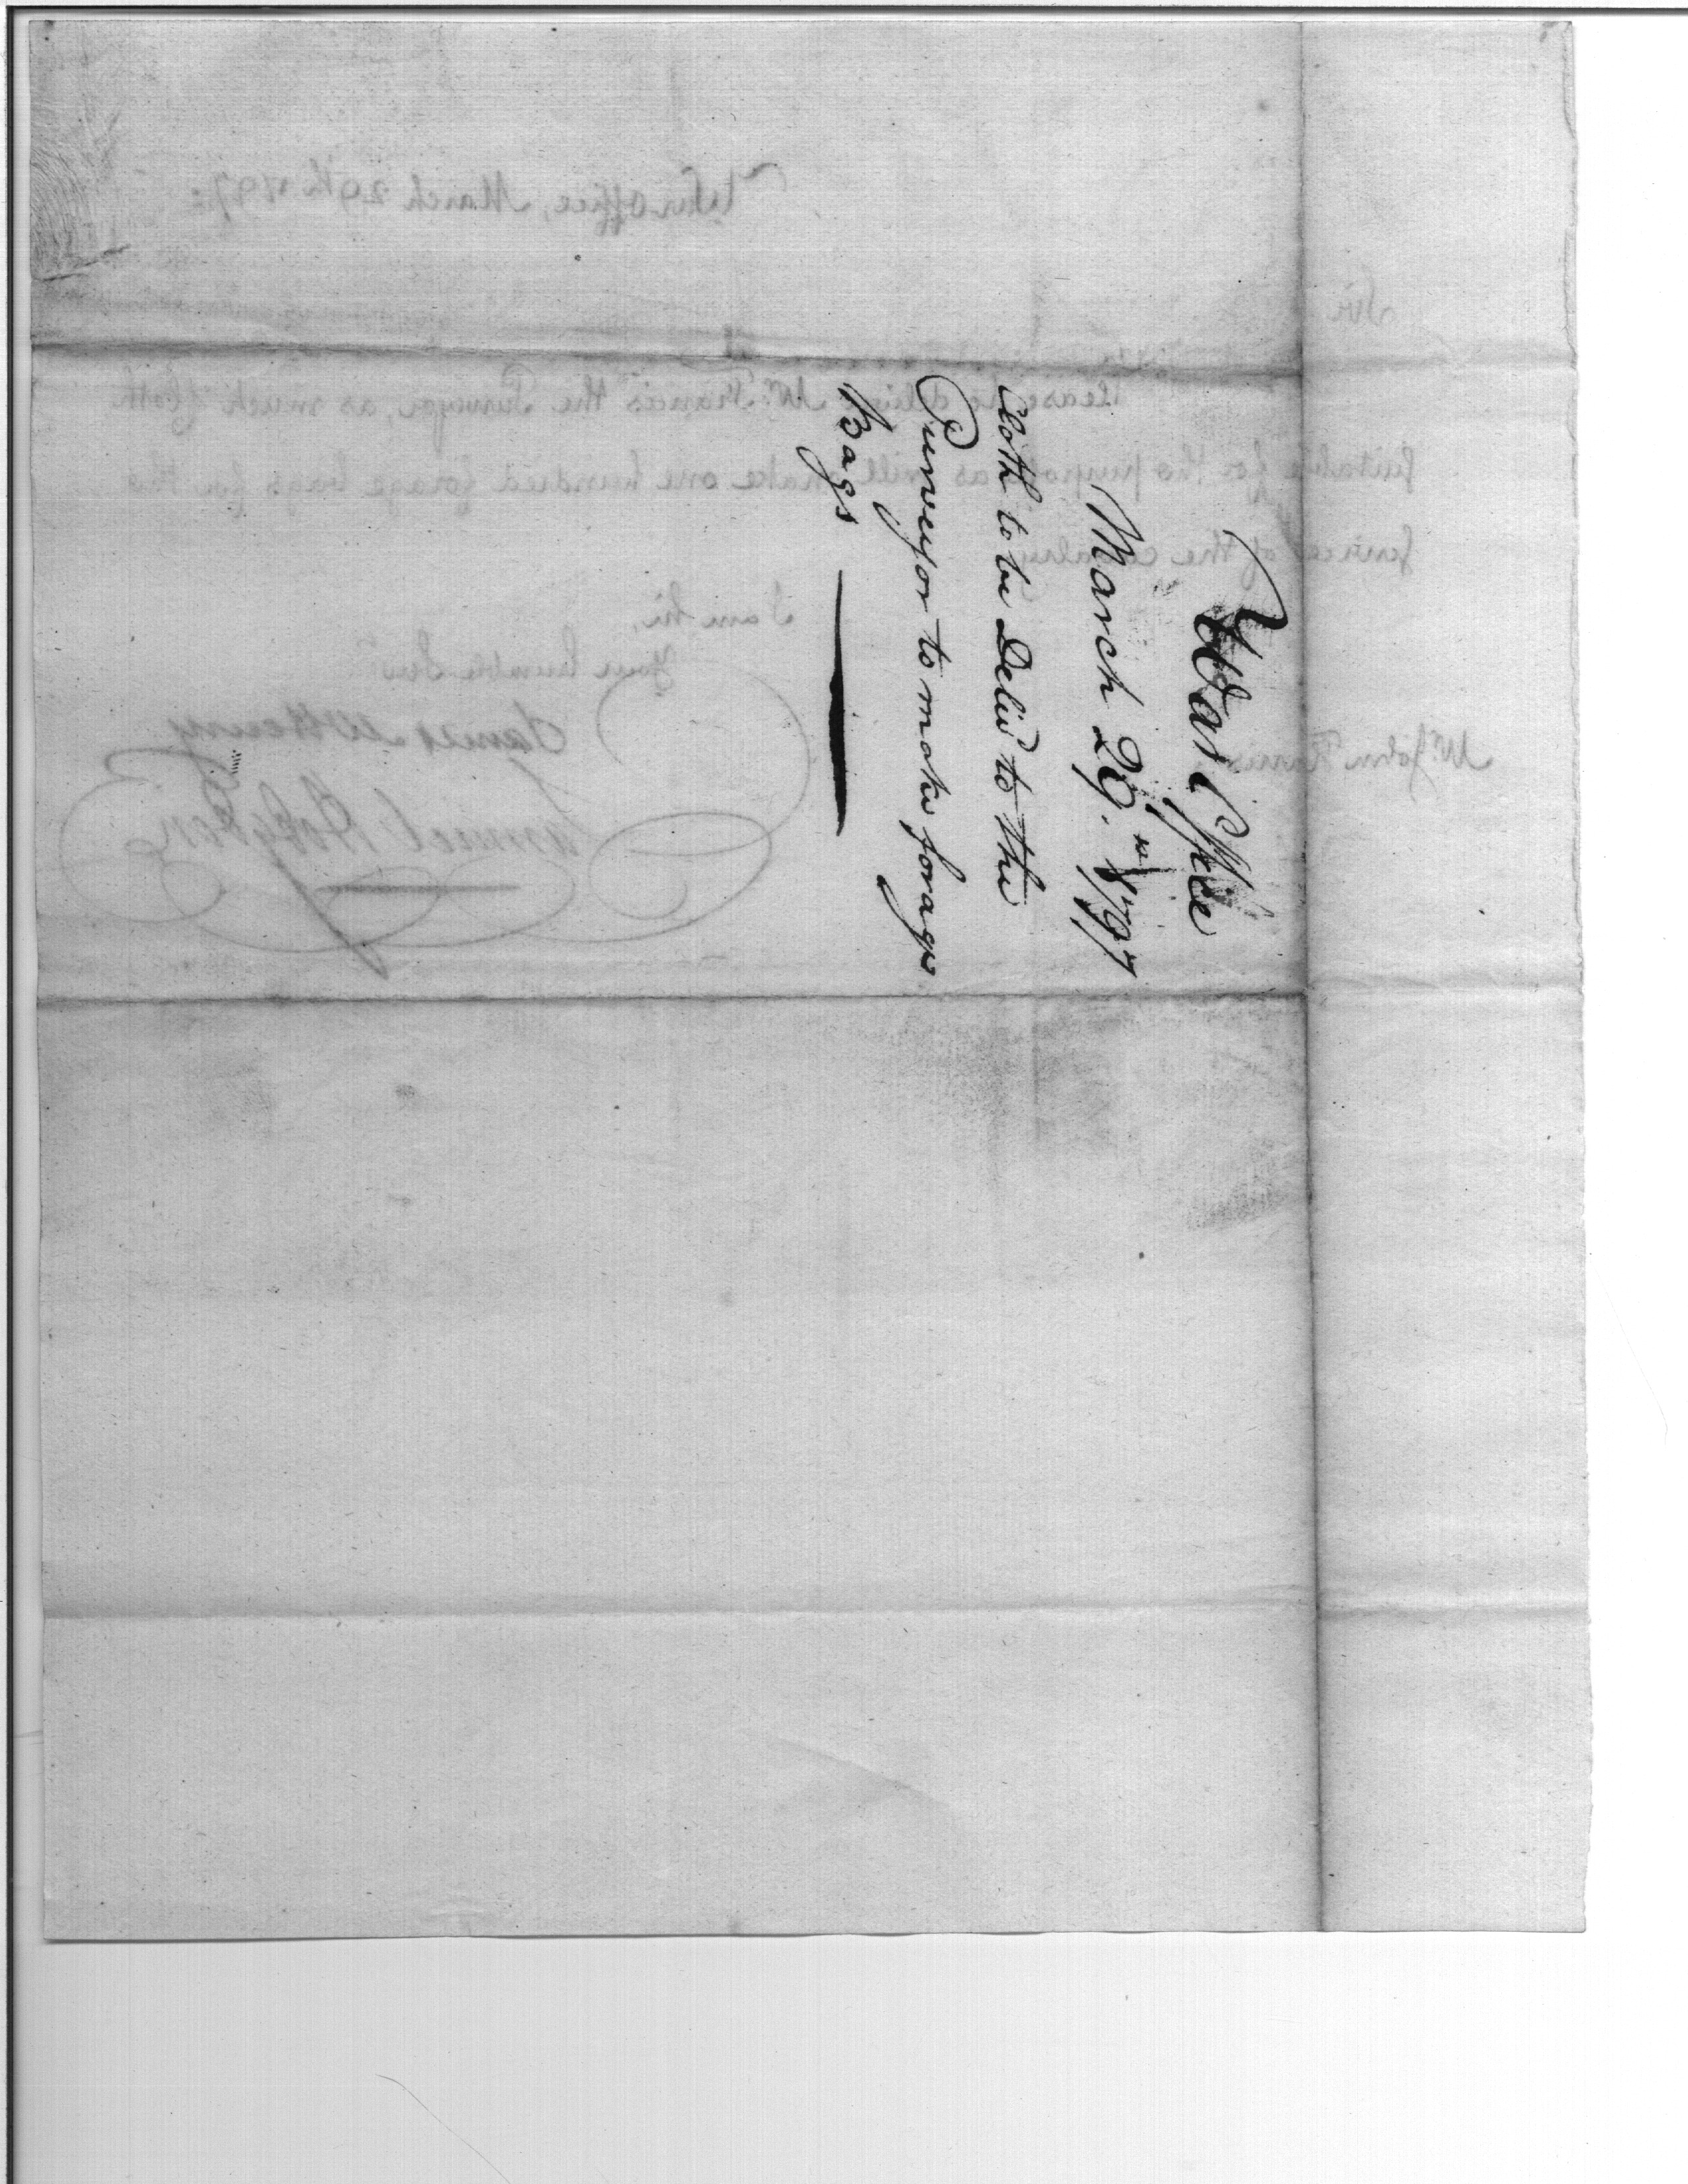 War Office
March 29.th 1797
Cloth to be Delivd to the
Purveyor to make forage
Bags
War office, March 29th 1797.
Sir
Please to deliver Mr. Francis the Purveyor, as much Cloth
suitable for the purpose as will make one hundred forage bags for the
service of the cavalry
I am Sir,
Your humble Servt
James McHenry
Samuel Hodgdon
Mr. John Harris